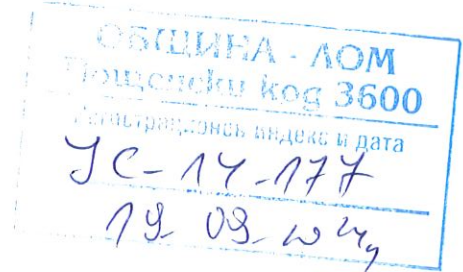 ОБЩИНА - ЛОМ
Пощенски код 3600
Регистрационен индекс и дата
УС-14-177
19.09.2024г